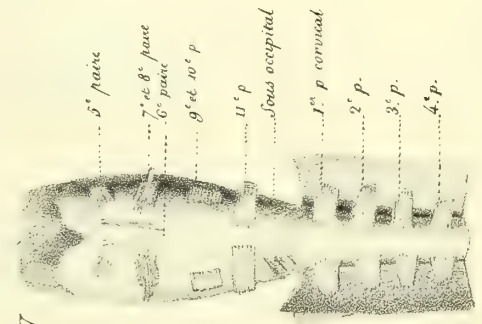 5e paire
7e et 8e paire
6e paire
9e et 10e p
11e p
Sous occipital
1er p cervical
2e p.
3e p.
4e p.